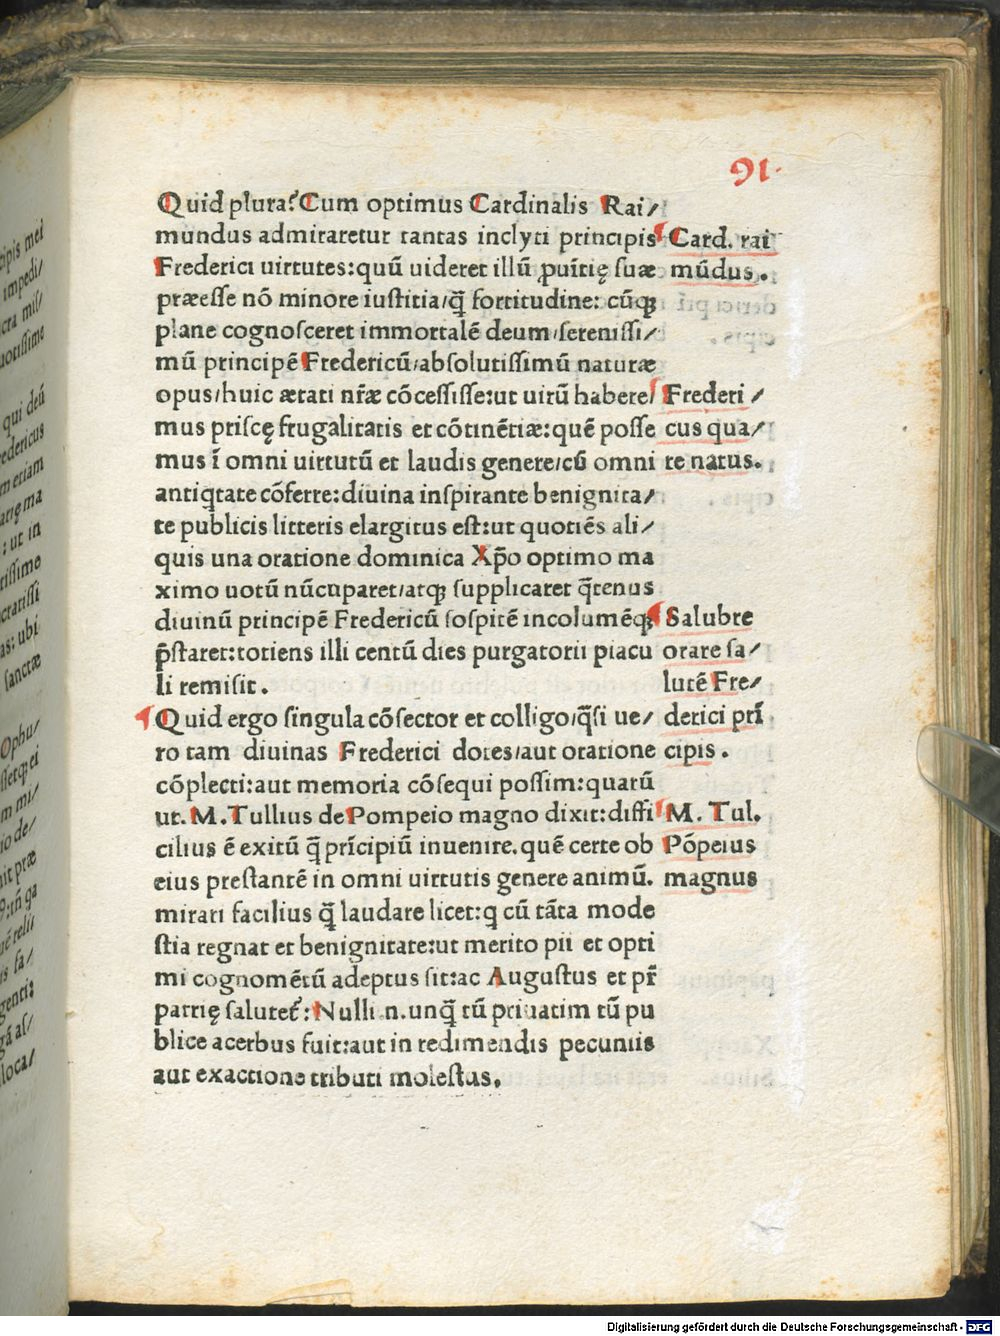 91.
Quid plura? Cum optimus Cardinalis Rai/
mundus admiraretur tantas inclyti principis
Frederici uirtutes: quū uideret illū ꝓuītię suæ
præesse nō minore iustitia/q̄̄ fortitudine: cūqꝫ
plane cognosceret immortalē deum/serenissi/
mū principē Fredericū/absolutissimū naturæ
opus/huic ætati nr̄æ cōcessisse: ut uirū habere/
mus priscę frugalitatis et cōtinētiæ: quē posse
mus ī omni uirtutū et laudis genere/cū omni
antiqtate cōferre: diuina inspirante benignita/
te publicis litteris elargitus est: ut quotiēs ali/
quis una oratione dominica Xp̄o optimo ma
ximo uotū nūcuparet/atqꝫ supplicaret q̄tenus
diuinū principē Fredericū sospitē incolumēqꝫ
p̄staret: totiens illi centū dies purgatorii piacu
li remisit.
Quid ergo singula cōsector et colligo/q̄si ue/
ro tam diuinas Frederici dotes/aut oratione
cōplecti: aut memoria cōsequi possim: quarū
ut. M. Tullius de Pompeio magno dixit: diffi
cilius ē exitū q̄ pr̄icipiū inuenire. quē certe ob
eius prestantē in omni uirtutis genere animū.
mirari facilius q̄ laudare licet: q cū tāta mode
stia regnat et benignitate: ut merito pii et opti
mi cognomētū adeptus sit: ac Augustus et pr̄
patrię salutet̄: Nulli .n. unq̄ tū priuatim tū pu
blice acerbus fuit: aut in redimendis pecuniis
aut exactione tributi molestus.
Card. rai
mūdus.
Frederi/
cus qua/
re natus.
Salubre
orare sa/
lutē Fre/
derici prī
cipis.
M. Tul.
Pōpeius
magnus
cipis mei
impedi/
cra mis/
uotissime
qui deū
edericus
m etiam
arię ma
: ut in
tissimo
cratissi
as: ubi
sanctæ
Ophu/
m mi/
io de/
nit præ
ué relii
is sa/
genti:
gā as/
loca/
Digitalisierung gefördert durch die Deutsche Forschungsgemeinschaft - DFG